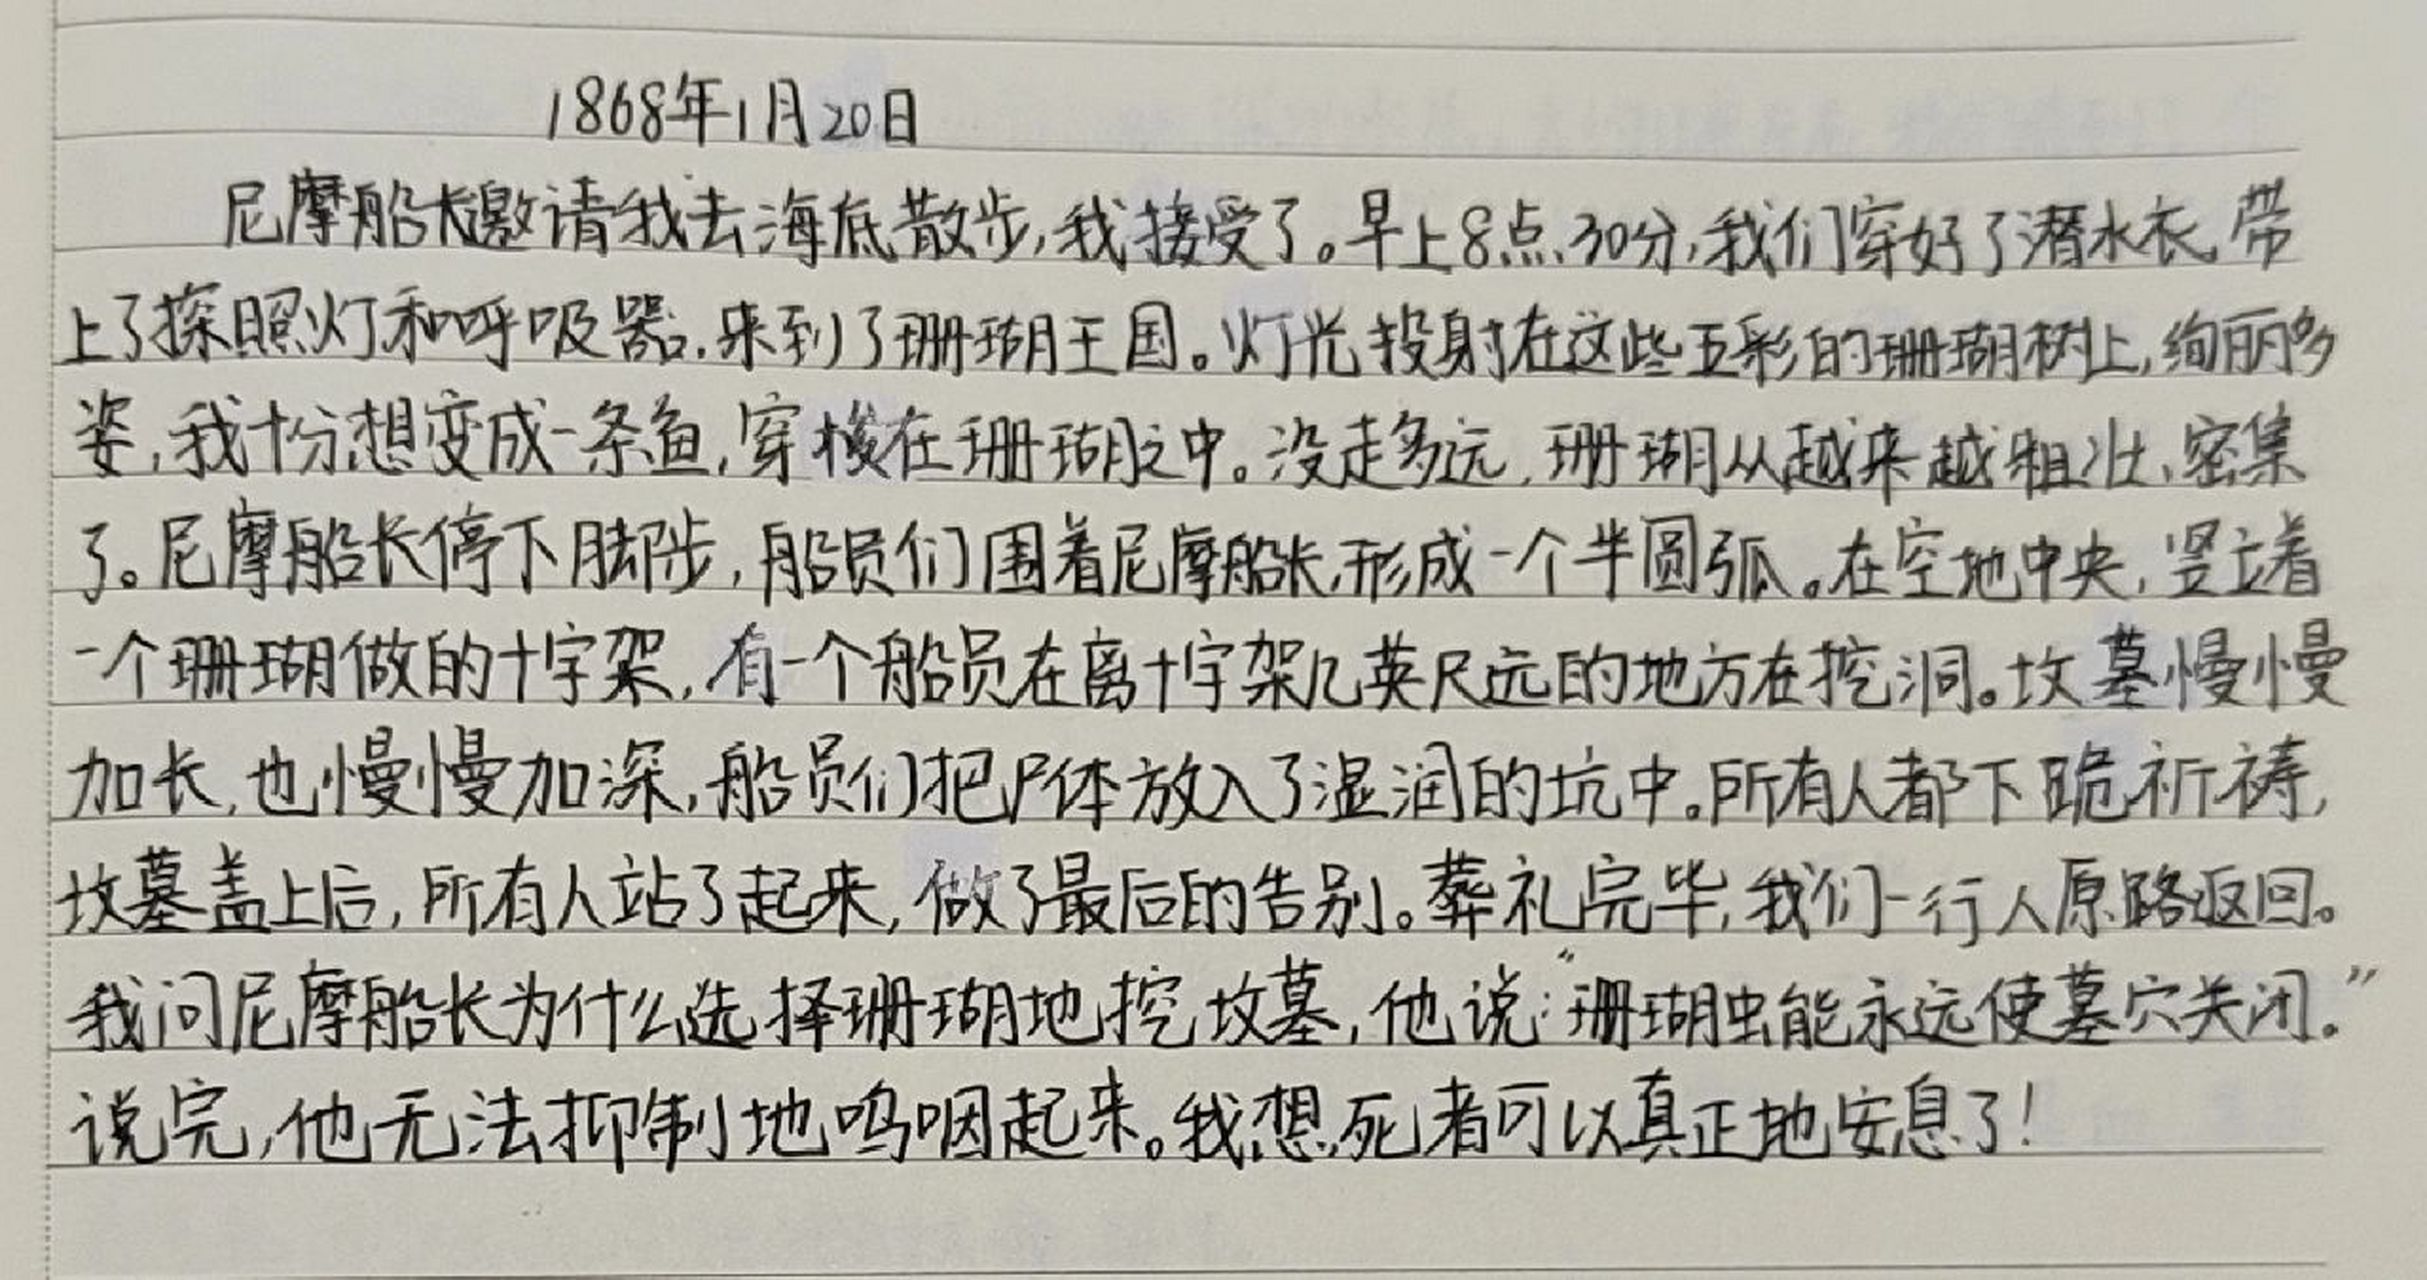 1868年1月20日
尼摩船长邀请我去海底散步,我接受了。早上8点30分,我们穿好了潜水衣,带
上了探照灯和呼吸器,来到了珊瑚王国。灯光投射在这些五彩的珊瑚树上,绚丽多
姿,我十分想变成一条鱼,穿梭在珊瑚之中。没走多远,珊瑚从越来越粗壮、密集
了。尼摩船长停下脚步,船员们围着尼摩船长,形成一个半圆弧。在空地中央,竖立着
一个珊瑚做的十字架,有一个船员在离十字架几英尺远的地方在挖洞。坟墓慢慢
加长,也慢慢加深,船员们把尸体放入了湿润的坑中。所有人都下跪祈祷,
坟墓盖上后,所有人站了起来,做了最后的告别。葬礼完毕,我们一行人原路返回。
我问尼摩船长为什么选择珊瑚地挖坟墓,他说:“珊瑚虫能永远使墓穴关闭。”
说完,他无法抑制地呜咽起来。我想,死者可以真正地安息了!